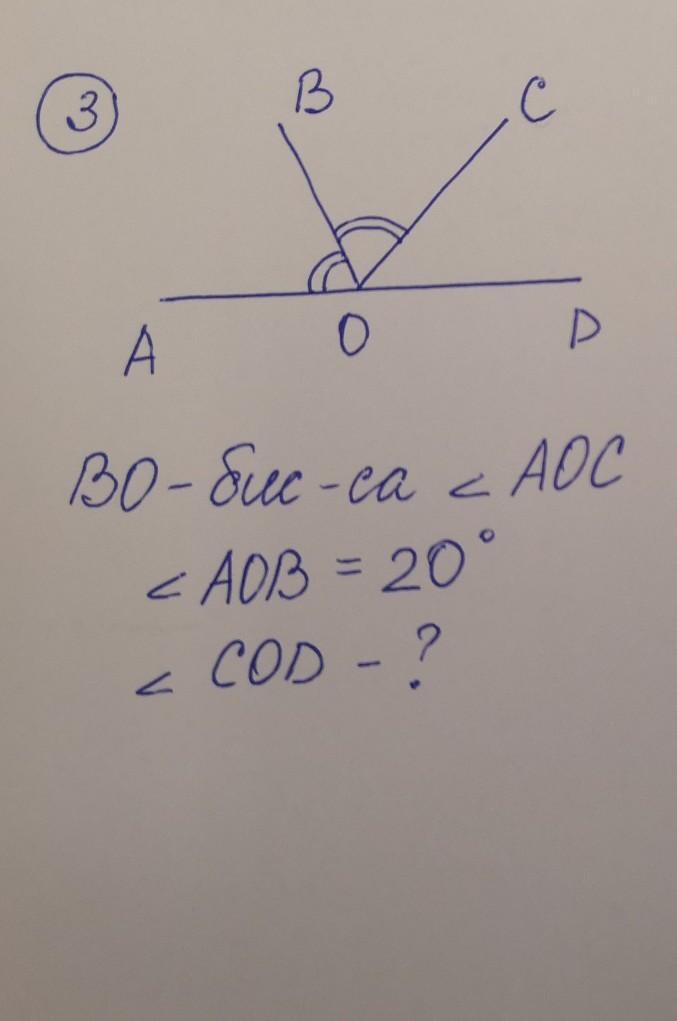 3
B C
A O D
BO - бис - са < AOC
< AOB = 20°
< COD - ?